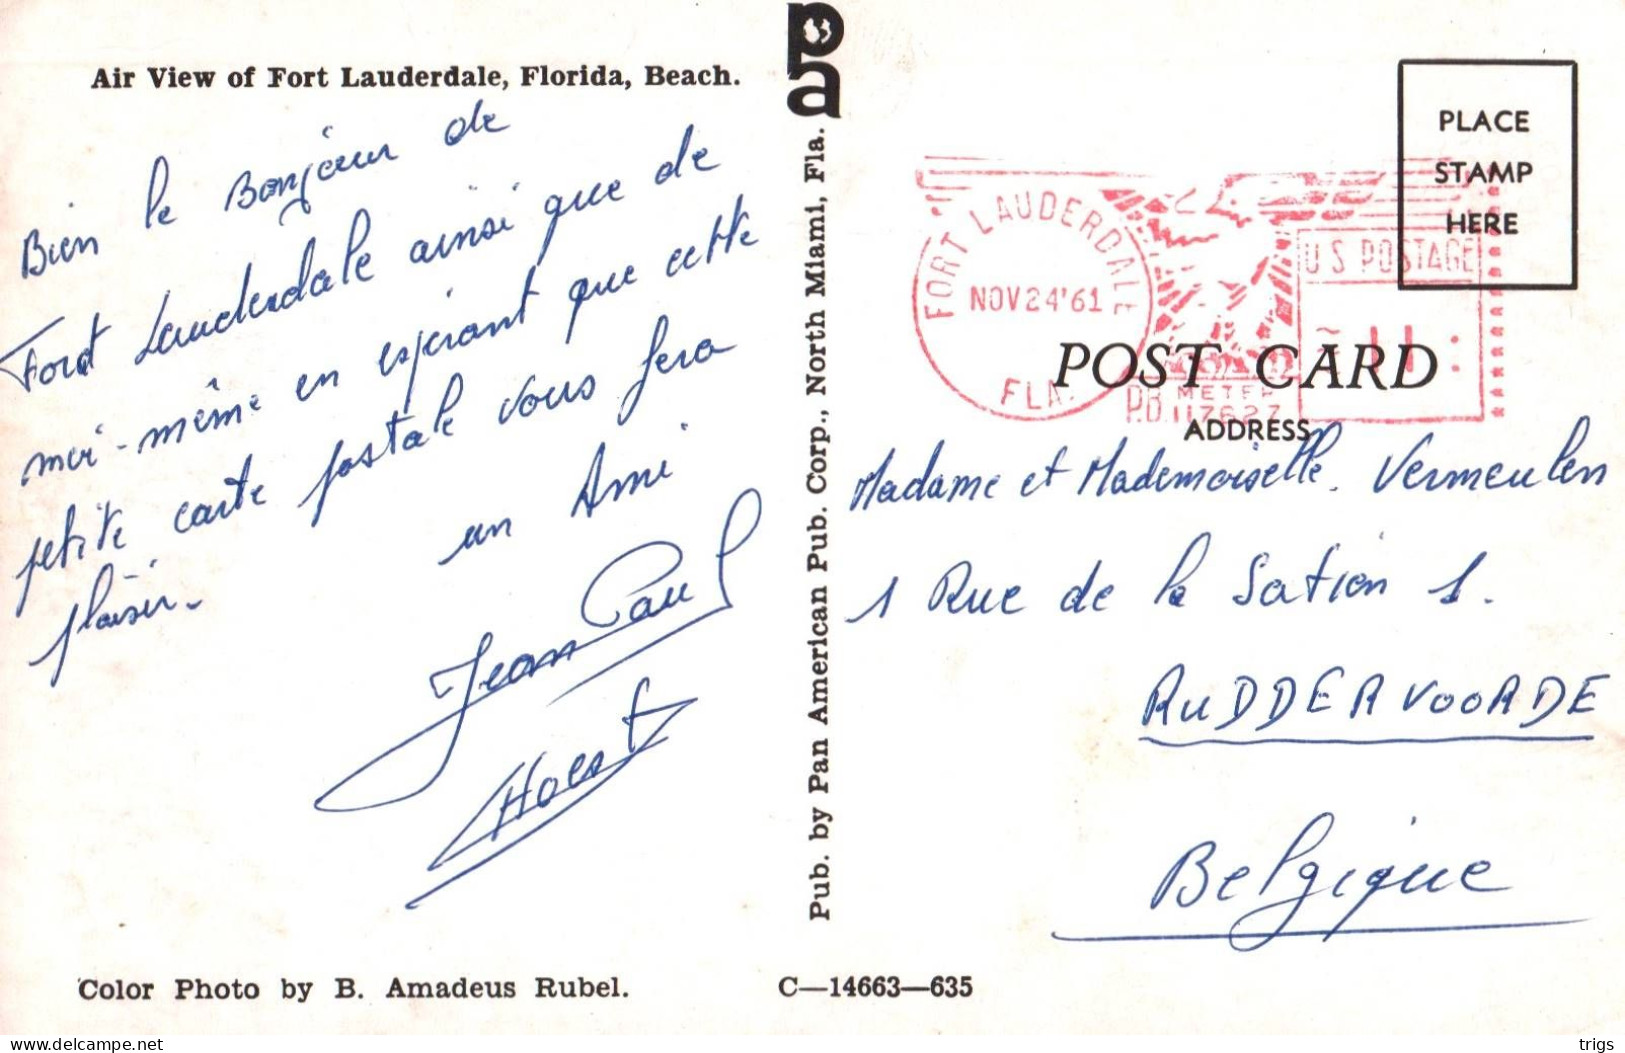 Air View of Fort Lauderdale, Florida, Beach.
Bien le Bonjour de
Ford Lauderdale ainsi que de
moi-même en espérant que cette
petite carte postale vous fera
plaisir.
un Ami
Jean Paul
Hoest
Color Photo by B. Amadeus Rubel.
C—14663—635
pa
Pub. by Pan American Pub. Corp., North Miami, Fla.
PLACE
STAMP
HERE
FORT LAUDERDALE
NOV 24 '61
FLA.
U S POSTAGE
11
P.B. METER
117627
POST CARD
ADDRESS
Madame et Mademoiselle. Vermeulen
1 Rue de la Sation 1.
RUDDERVOORDE
Belgique
delcampe.net
trigs